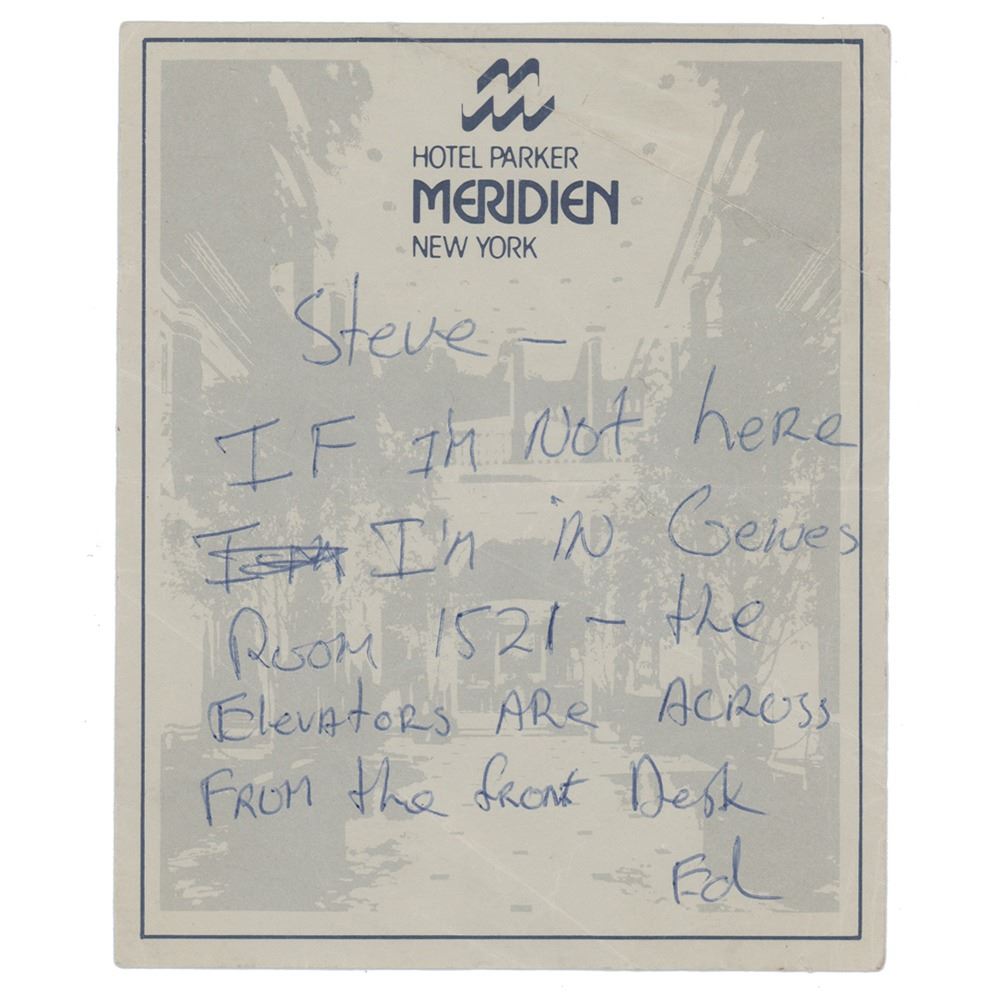 HOTEL PARKER
MERIDIEN
NEW YORK
Steve —
IF I'M Not here
I'm iN Genes
Room 1521 - the
Elevators ARe ACROSS
FROM the front Desk
Ed